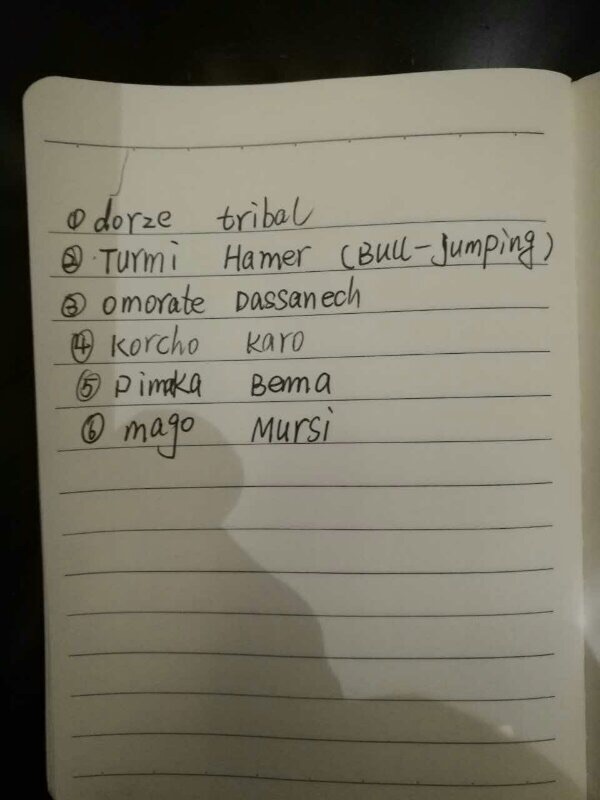 ① dorze tribal
② Turmi Hamer (Bull-Jumping)
③ omorate Dassanech
④ Korcho Karo
⑤ Dimaka Bema
⑥ mago Mursi